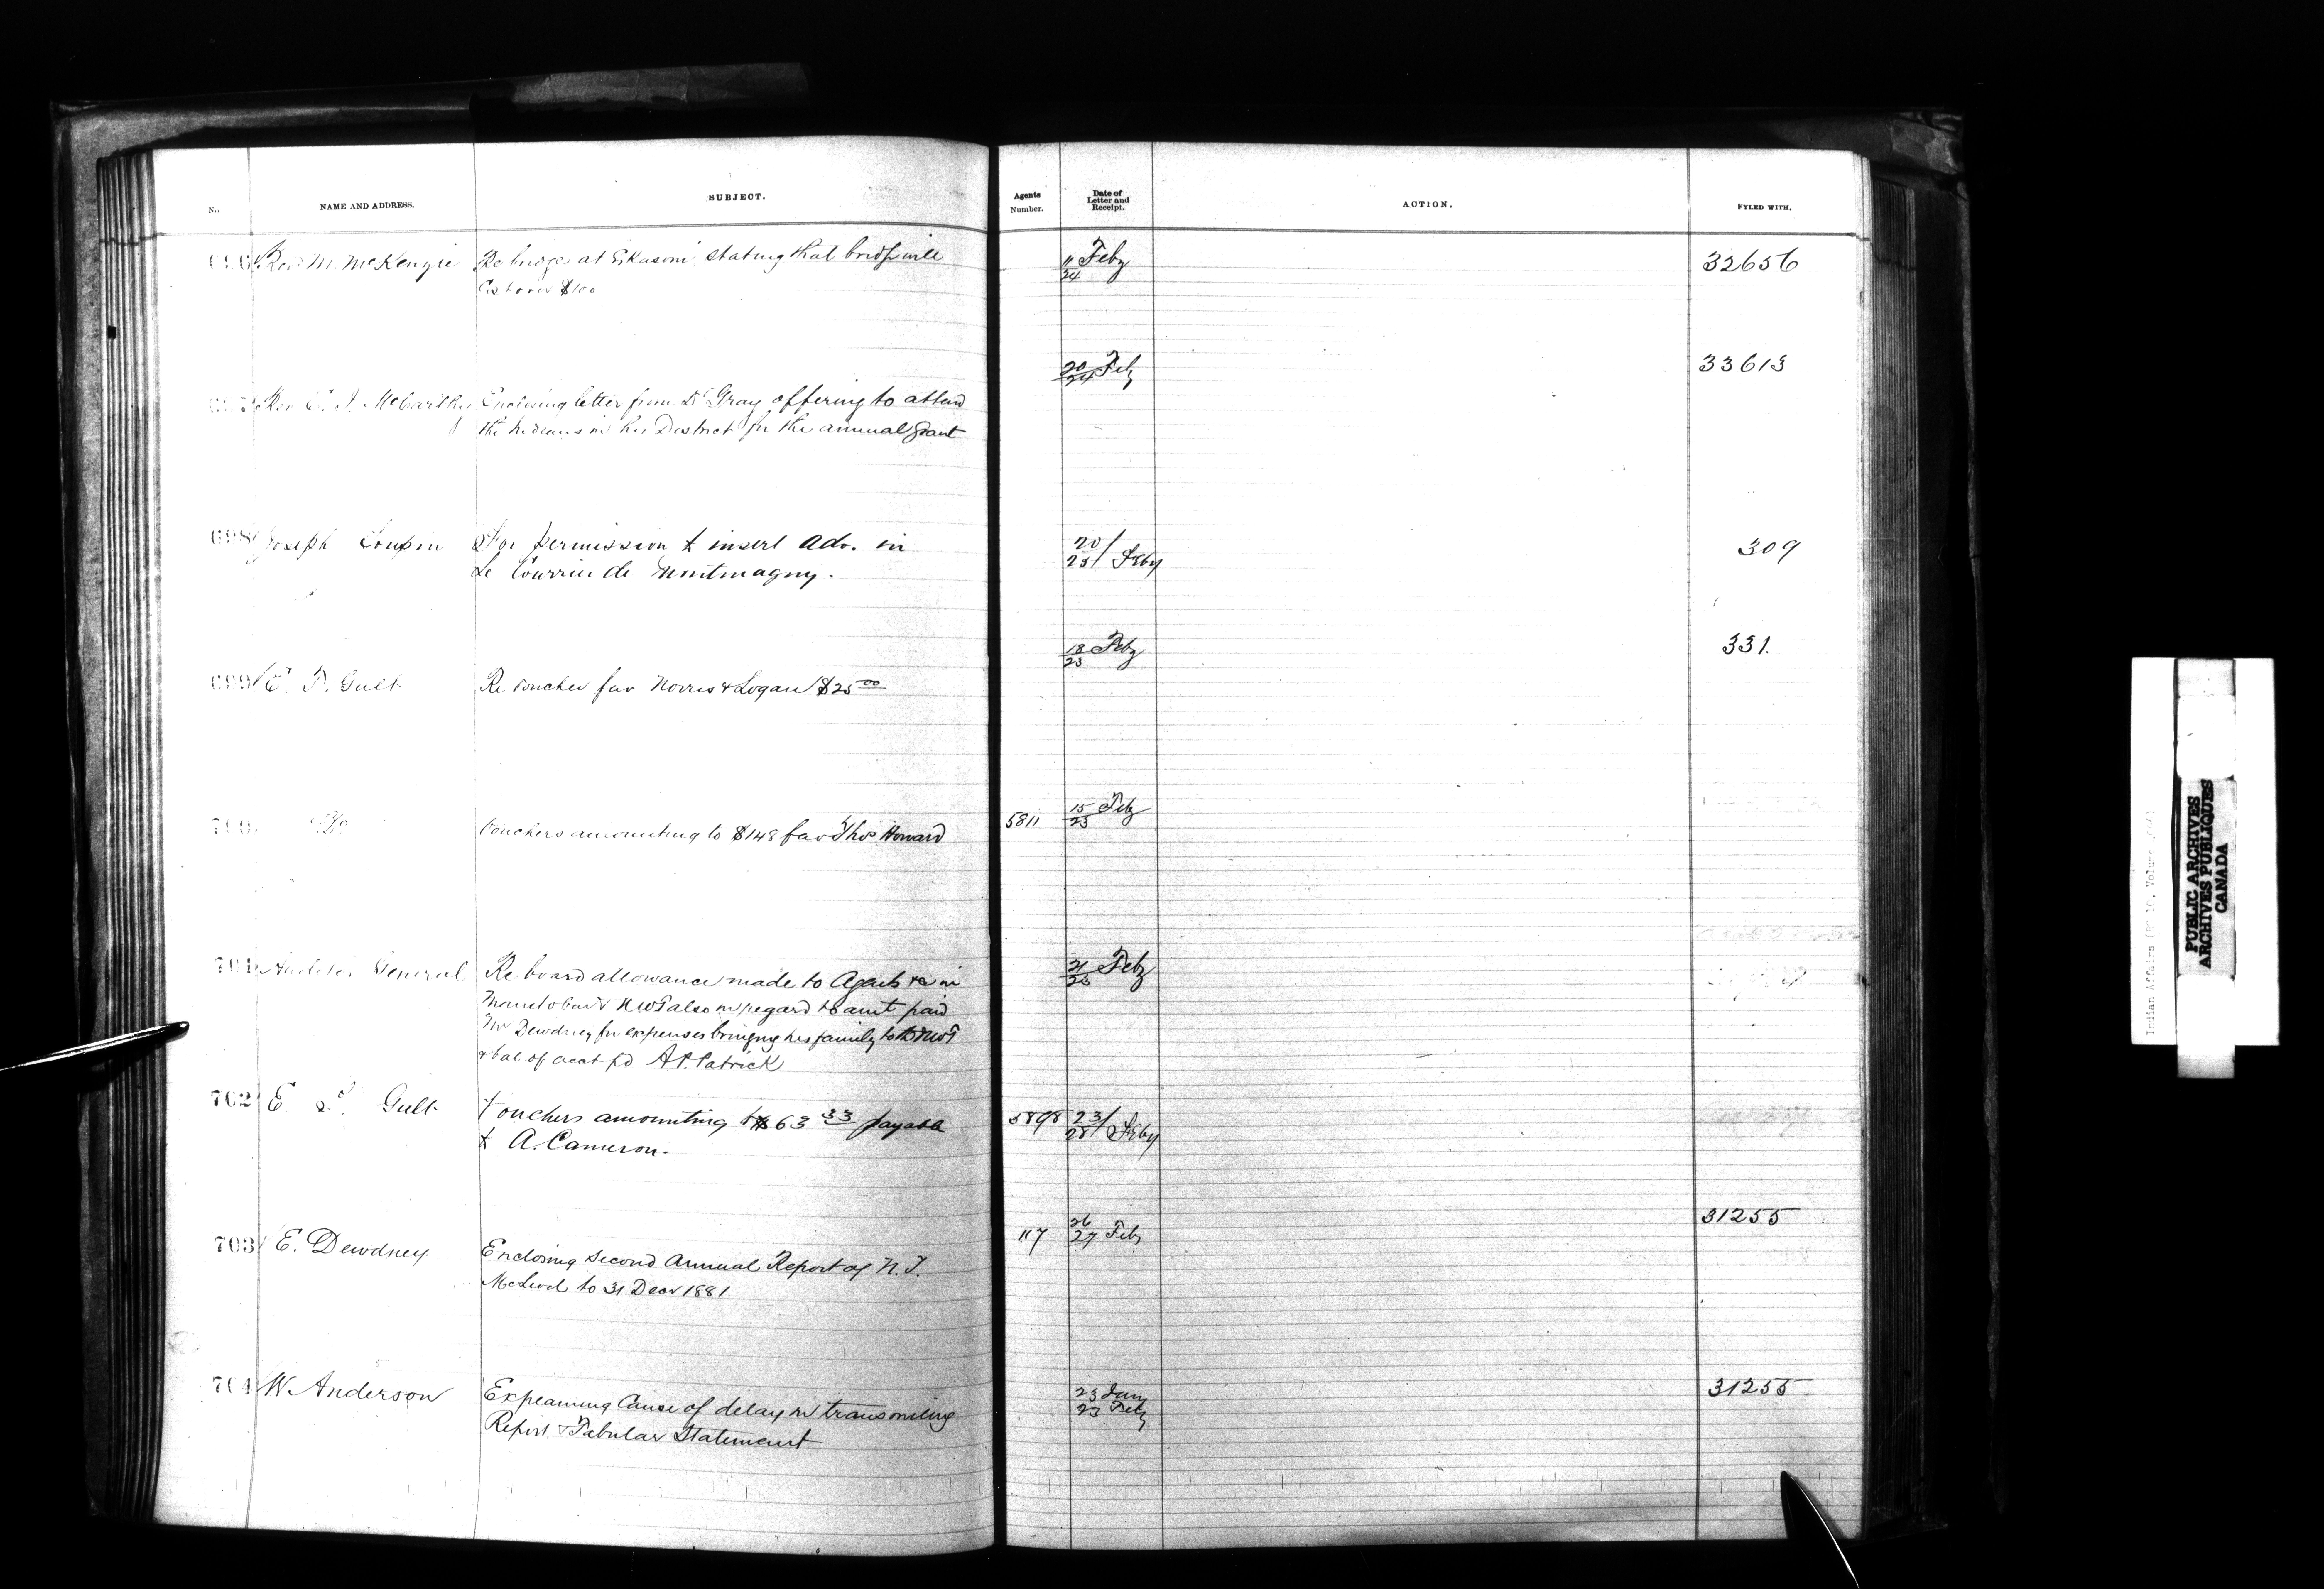 No. NAME AND ADDRESS. SUBJECT. Agents Number. Date of Letter and Receipt. ACTION. FYLED WITH.
696 Rev M. McKenzie Re bridge at Eskasoni stating that bridge will 11/24 Feby 32656
Cost over $100
697 Rev C. I. McCarthy Enclosing letter from Dr Gray offering to attend 20/24 Feby 33613
the Indians in his District for the annual grant
698 Joseph For permission to insert adv. in 20/25 Feby 309
Le Courrier de Montmagny.
699 E. T. Galt Re voucher fav Norris & Logan $25 00 18/23 Feby 331.
700 Do Vouchers amounting to $148 fav Thos Howard 5811 15/23 Feby
701 Auditor General Re board allowance made to Agents &c in 21/23 Feby
Manitoba & NWT also in regard to amt paid
Mr Dewdney for expenses bringing his family to the NWT
& bal of acct pd A P. Patrick
702 E. T. Galt Vouchers amounting to $63 33 payable 5898 23/28 Feby
to A. Cameron.
703 E. Dewdney Enclosing Second Annual Report of N. T. 117 26/27 Feby 31255
McLeod to 31 Decr 1881
704 W. Anderson Explaining Cause of delay in transmitting 23 Jany 23 Feby 31255
Report & Tabular Statement
PUBLIC ARCHIVES
ARCHIVES PUBLIQUES
CANADA
Indian Affairs (RG 10, Volume